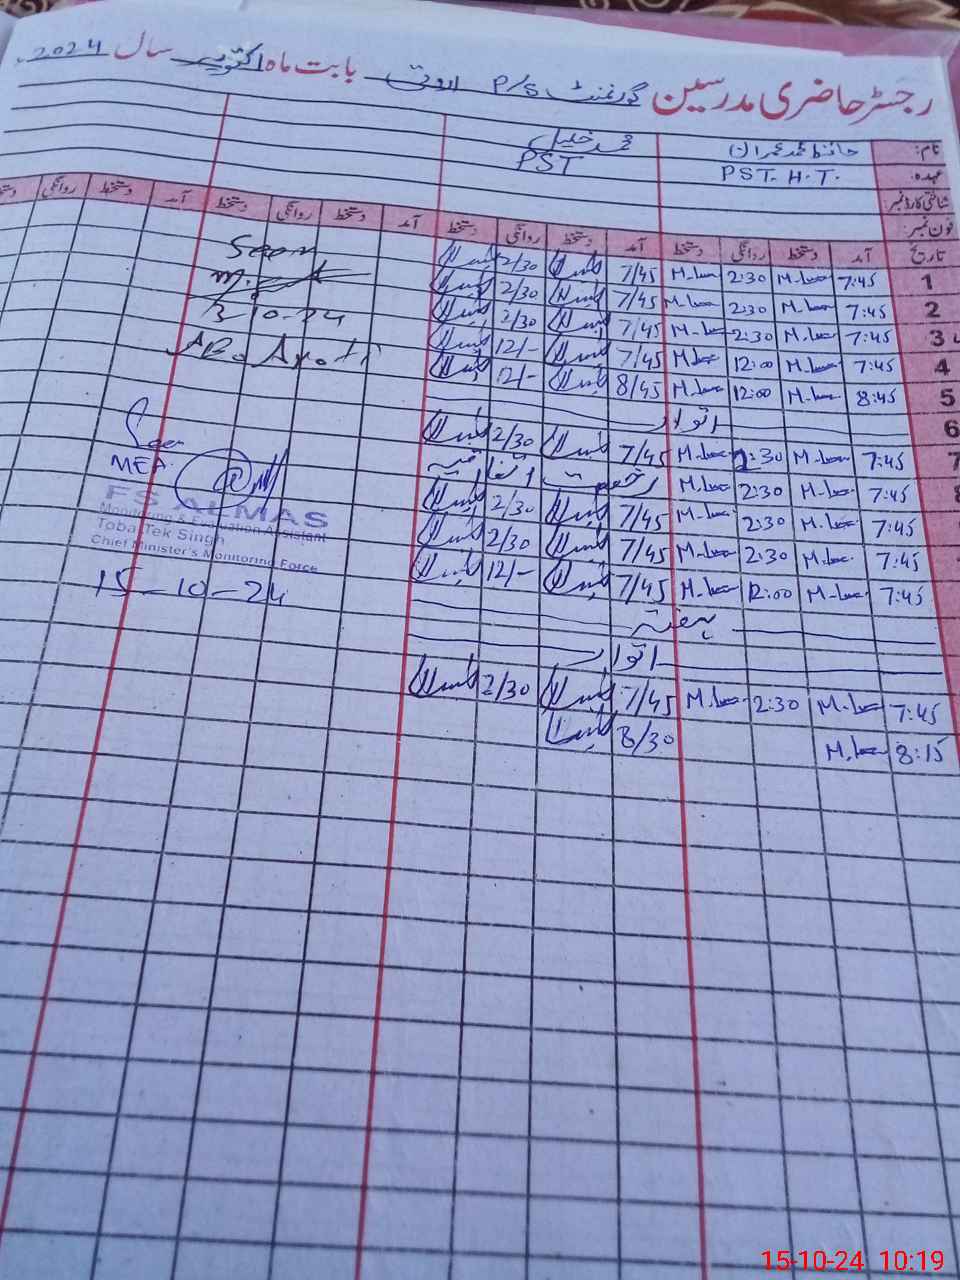 رجسٹر حاضری مدرسین گورنمنٹ P/S اروتی بابت ماہ اکتوبر سال 2024
نام: حافظ محمد عمران محمد خلیل
عہدہ: PST. H.T. PST
شناختی کارڈ نمبر
فون نمبر:
تاریخ آمد دستخط روانگی دستخط آمد دستخط روانگی دستخط آمد دستخط روانگی دستخط آمد دستخط روانگی
1 7:45 2:30 7/45 2/30 Seen
2 7:45 2:30 7/45 2/30
3 7:45 2:30 7/45 2/30 3-10-24
4 7:45 12:00 7/45 12/-
5 8:45 12:00 8/45 12/-
6 اتوار
7 7:45 2:30 7/45 2/30 Seen
8 7:45 2:30 رخصت اتفاقیہ MEA
7:45 2:30 7/45 2/30
7:45 2:30 7/45 2/30
7:45 12:00 7/45 12/-
ہفتہ
اتوار
7:45 2:30 7/45 2/30
8:15 8/30
ALMAS
Monitoring & Evaluation Assistant
Toba Tek Singh
Chief Minister's Monitoring Force
15-10-24
15-10-24 10:19